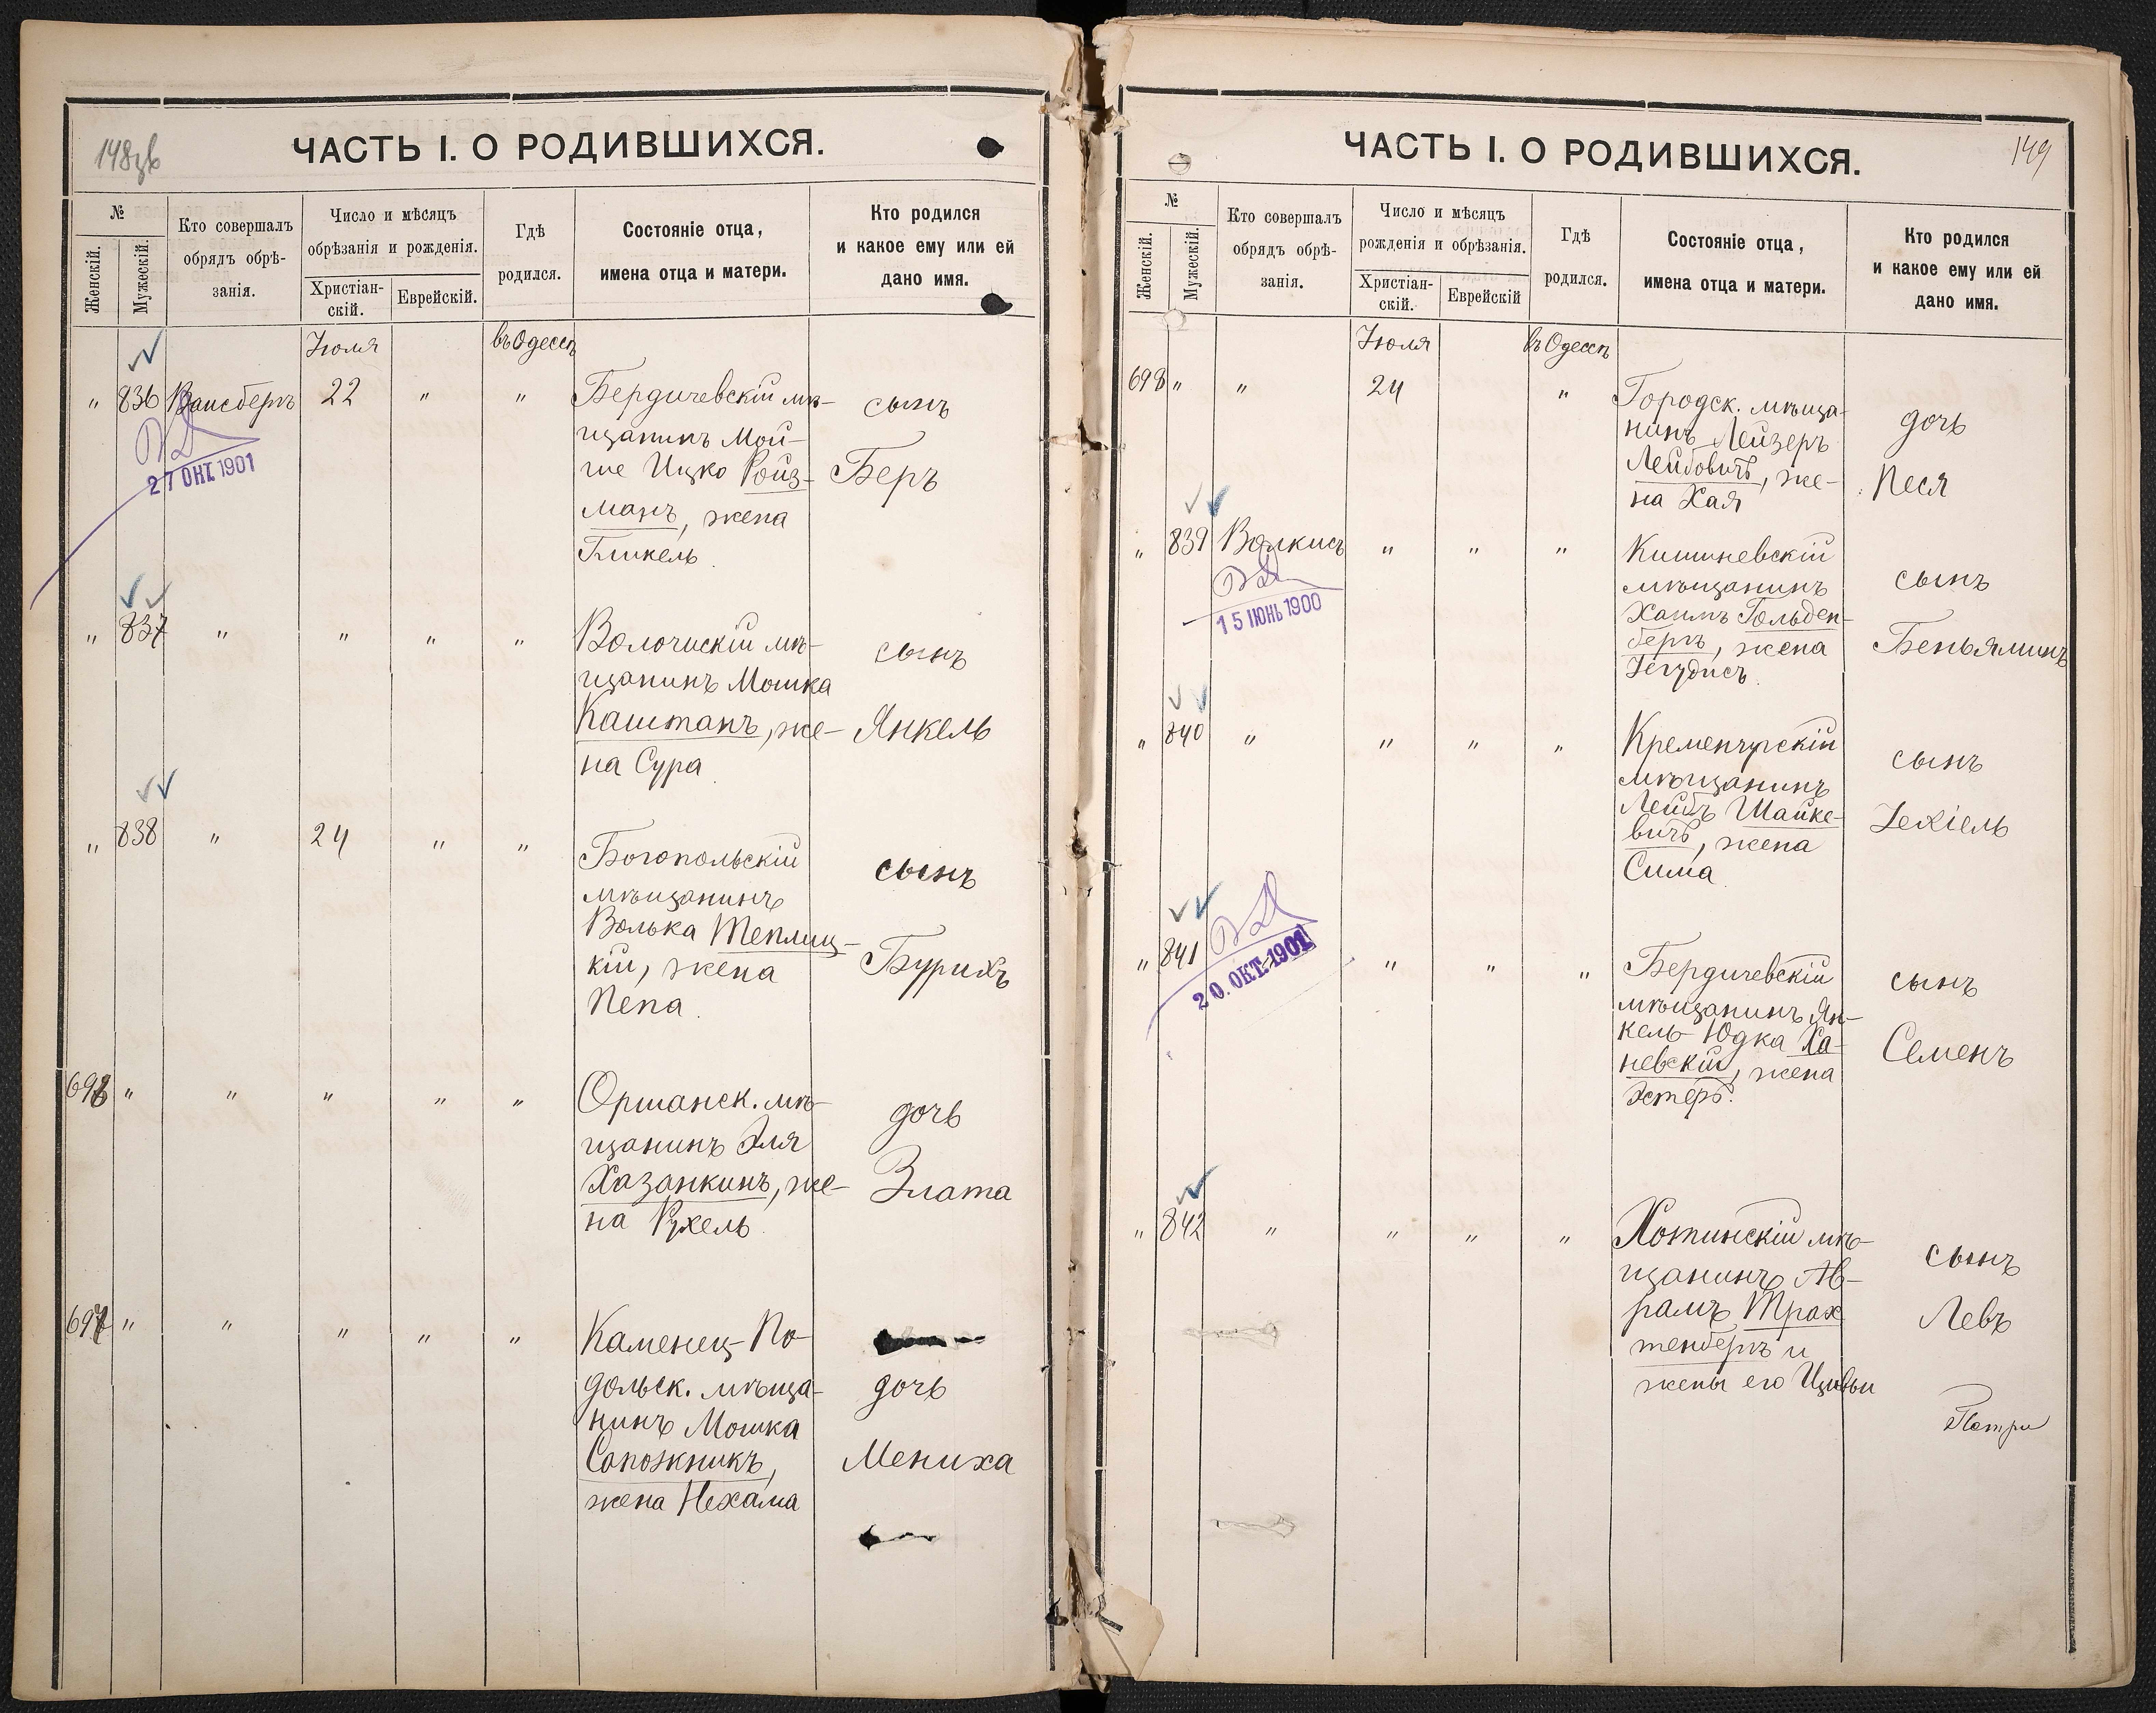 148об
ЧАСТЬ I. О РОДИВШИХСЯ.
№
Женскій.
Мужескій.
Кто совершалъ
обрядъ обрѣ-
занія.
Число и мѣсяцъ
обрѣзанія и рожденія.
Христіан-
скій.
Еврейскій.
Гдѣ
родился.
Состояніе отца,
имена отца и матери.
Кто родился
и какое ему или ей
дано имя.
Іюля
въ Одессѣ
" 836 Вайсбергъ 22 " " Бердичевскій мѣ-
щанинъ Мой-
ше Ицко Ройз-
манъ, жена
Гликель.
сынъ
Беръ
27 ОКТ. 1901
" 837 " " " " Волочискій мѣ-
щанинъ Мошка
Каштанъ, же-
на Сура
сынъ
Янкель
" 838 " 24 " " Богопольскій
мѣщанинъ
Волька Теплиц-
кій, жена
Пепа.
сынъ
Бурихъ
696 " " " " " Оршанск. мѣ-
щанинъ Эля
Хазанкинъ, же-
на Рухель.
дочь
Злата
697 " " " " " Каменец-По-
дольск. мѣща-
нинъ Мошка
Сапожникъ,
жена Нехама
дочь
Мениха
149
ЧАСТЬ I. О РОДИВШИХСЯ.
№
Женскій.
Мужескій.
Кто совершалъ
обрядъ обрѣ-
занія.
Число и мѣсяцъ
рожденія и обрѣзанія.
Христіан-
скій.
Еврейскій
Гдѣ
родился.
Состояніе отца,
имена отца и матери.
Кто родился
и какое ему или ей
дано имя.
Іюля
въ Одессѣ
698 " " 24 " Городск. мѣща-
нинъ Лейзеръ
Лейбовичъ, же-
на Хая
дочь
Песя
" 839 Волкисъ " " " Кишиневскій
мѣщанинъ
Хаимъ Гольден-
бергъ, жена
Іегудисъ.
сынъ
Беньяминъ
15 ІЮНЬ 1900
" 840 " " " " Кременчугскій
мѣщанинъ
Лейбъ Шайке-
вичъ, жена
Сима
сынъ
Іехіель
" 841 " " " Бердичевскій
мѣщанинъ Ян-
кель-Юдка Ха-
невскій, жена
Эстеръ.
сынъ
Семенъ
20. ОКТ. 1901
" 842 " " " " Хотинскій мѣ-
щанинъ Ав-
рамъ Трах
тенбергъ и
жены его Цивьи
сынъ
Левъ